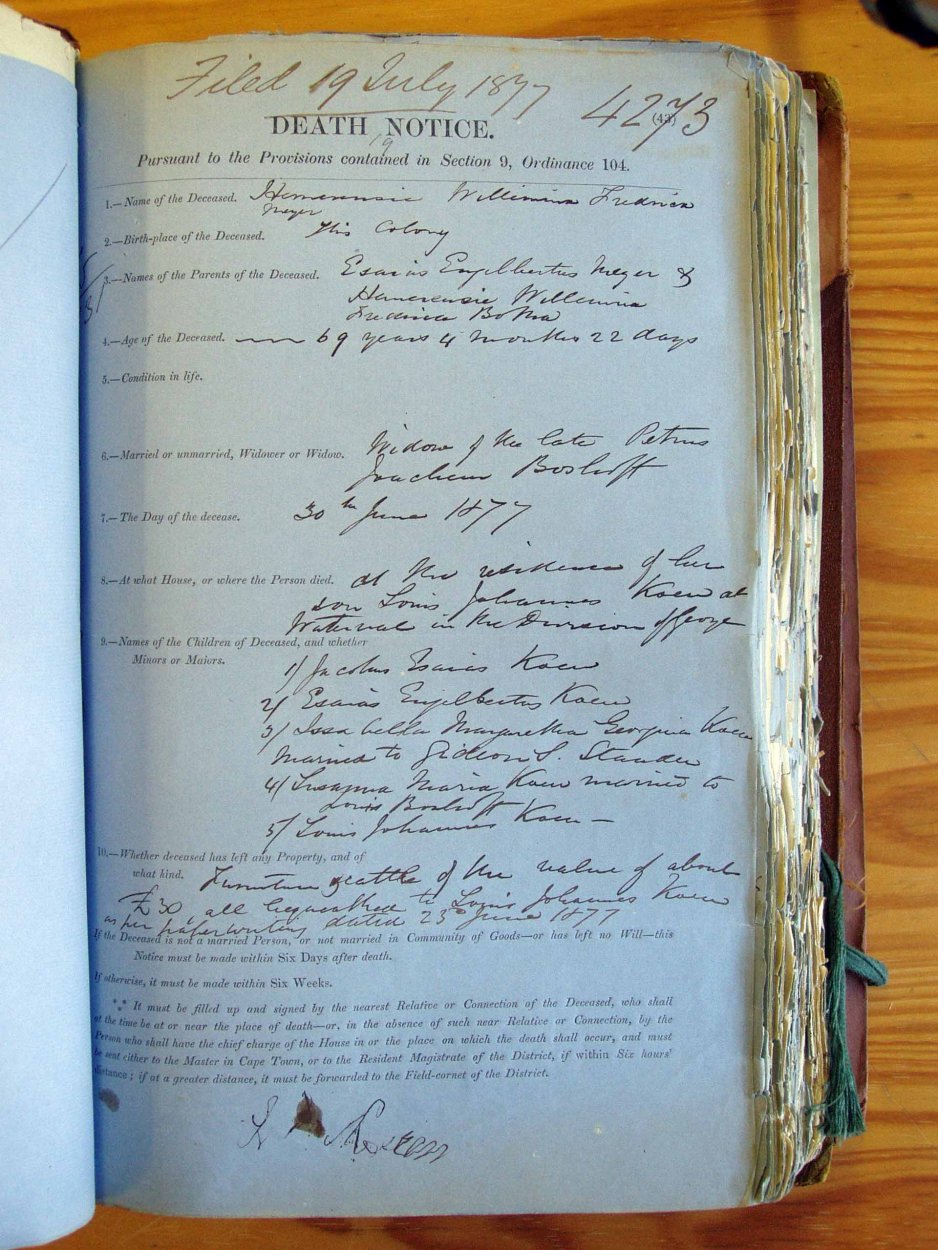 Filed 19 July 1877
4273
(43)
DEATH NOTICE.
19
Pursuant to the Provisions contained in Section 9, Ordinance 104.
1.—Name of the Deceased. Hemerensia Willimina Fredrica
Meyer
2.—Birth-place of the Deceased. This Colony
3.—Names of the Parents of the Deceased. Esaias Engelbertus Meyer &
Hemerensie Willemina
Fredrica Botha
4.—Age of the Deceased. 69 years 4 months 22 days
5.—Condition in life.
6.—Married or unmarried, Widower or Widow. Widow of the late Petrus
Joachem Boshoff
7.—The Day of the decease. 30th June 1877
8.—At what House, or where the Person died. at the residence of her
son Louis Johannes Koen at
Waterval in the Division of George
9.—Names of the Children of Deceased, and whether
Minors or Majors.
1/ Jacobus Esaias Koen
2/ Esaias Engelbertus Koen
3/ Issabella Margaretha Georgina Koen
married to Gideon S. Stander
4/ Susanna Maria Koen married to
Louis Boshoff
5/ Louis Johannes Koen —
10.—Whether deceased has left any Property, and of
what kind. Furniture & cattle of the value of about
£30, all bequeathed to Louis Johannes Koen
as per paperwriting dated 23d June 1877
If the Deceased is not a married Person, or not married in Community of Goods—or has left no Will—this
Notice must be made within Six Days after death.
If otherwise, it must be made within Six Weeks.
It must be filled up and signed by the nearest Relative or Connection of the Deceased, who shall
at the time be at or near the place of death—or, in the absence of such near Relative or Connection, by the
Person who shall have the chief charge of the House in or the place on which the death shall occur, and must
be sent either to the Master in Cape Town, or to the Resident Magistrate of the District, if within Six hours'
distance; if at a greater distance, it must be forwarded to the Field-cornet of the District.